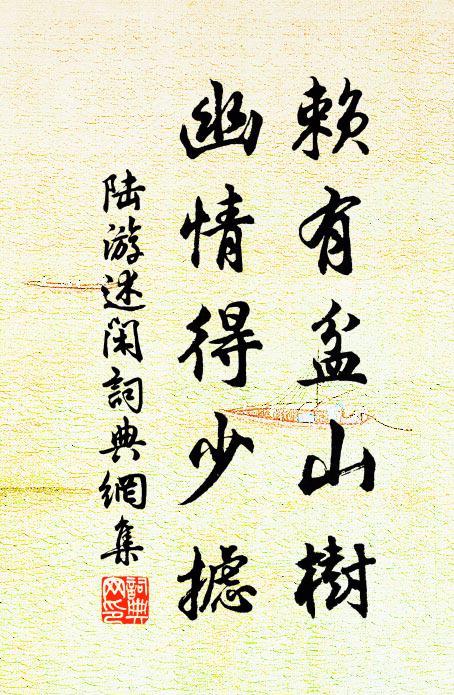 賴有盆山樹
幽情得少攄
陸游述閑詞典網集
詞典
网印